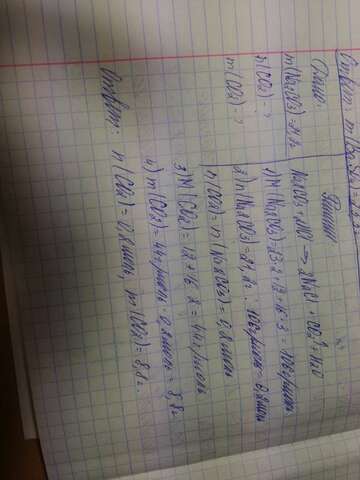 Дано:
m(Na₂CO₃)=21,2
n(CO₂)=?
m(CO₂)=?
Решение
Na₂CO₃+2HCl → 2NaCl + CO₂↑ + H₂O
1) M(Na₂CO₃)=23·2+12+16·3=106г/моль
2) n(Na₂CO₃)=21,2г : 106г/моль=0,2моль
n(CO₂)=n(Na₂CO₃)=0,2моль
3) M(CO₂)=12+16·2=44г/моль
4) m(CO₂)=44г/моль·0,2моль=8,8г.
Ответ: n(CO₂)=0,2моль, m(CO₂)=8,8г.